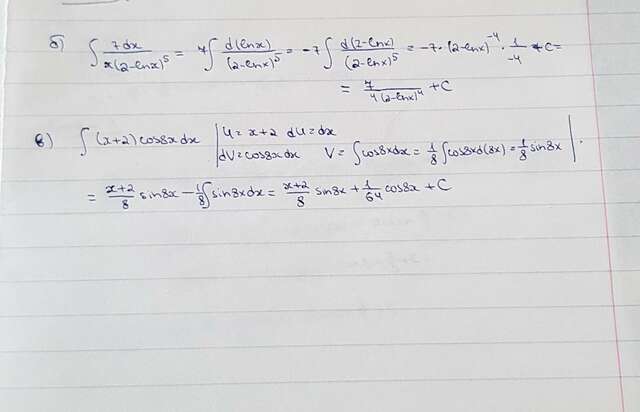 б) ∫ 7dx / x(2-lnx)^5 = 7∫ d(lnx) / (2-lnx)^5 = -7 ∫ d(2-lnx) / (2-lnx)^5 = -7·(2-lnx)^-4 · 1/-4 + C =
= 7 / 4(2-lnx)^4 + C
в) ∫ (x+2) cos8x dx | U = x+2 dU = dx
dV = cos8x dx V = ∫cos8x dx = 1/8 ∫cos8x d(8x) = 1/8 sin8x | .
= x+2/8 sin8x - 1/8 ∫ sin8x dx = x+2/8 sin8x + 1/64 cos8x + C